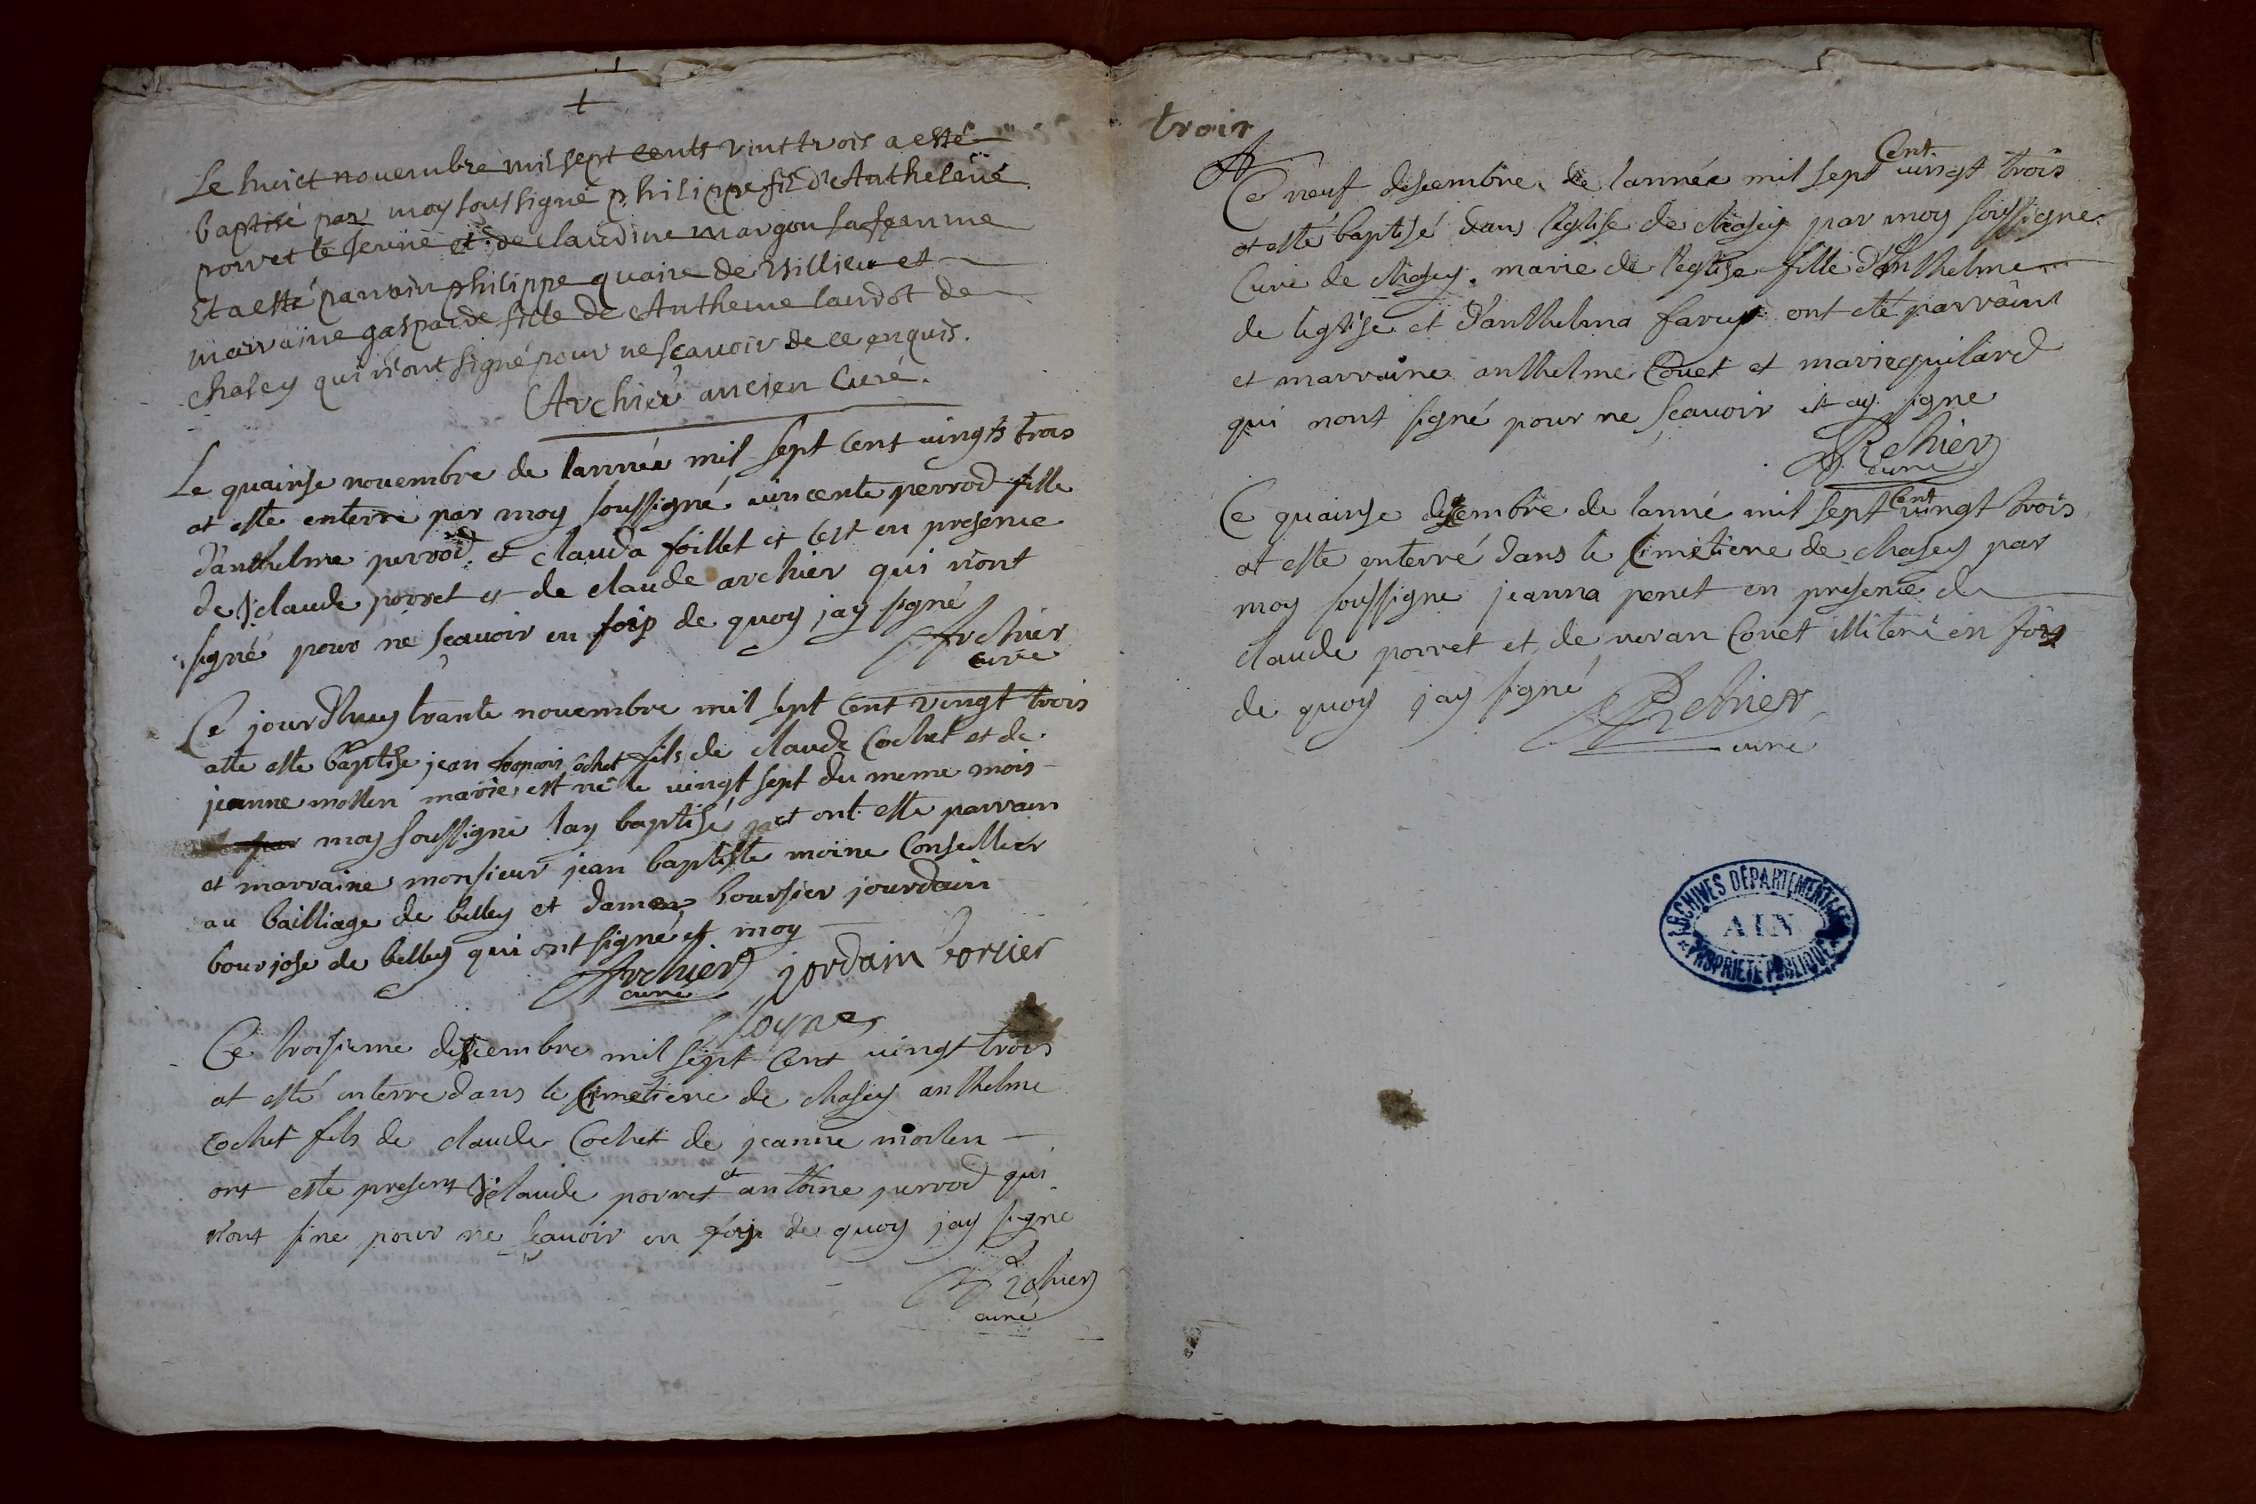 Le huict novembre mil sept cents vint trois a esté
baptisé par moy soussigné philippe fils d'Anthelme
porret le jeune et de claudine margon sa femme
Et a esté parrain philippe quaire de Villieu et
marraine gasparde fille de Antheme landot de
chasey qui n'ont signé pour ne scavoir de ce enquis.
Archier ancien Curé.
Le quainse novembre de l'année mil sept cent vingts trois
at esté enterré par moy soussigné vincente perrod fille
d'anthelme perrod et clauda foillet et cest en presence
de claude porret et de claude archier qui n'ont
signé pour ne sçavoir en foip de quoy jay signé
Archier
curé
Ce jourdhuy trante novembre mil sept cent vingt trois
atte esté baptise jean francois cochet fils de claude Cochet et de
jeanne mollen marie est né le vingt sept du meme mois
par moy soussigné lay baptisé et ont esté parrain
et marraine monsieur jean baptiste moine Conseiller
au bailliage de belley et dame boursier jourdain
bourjose de belley qui ont signé et moy
Archier jordain borsier
curé
Ce troisieme desembre mil sept Cent vingt trois
at esté enterre dans le Cimetiere de chasey anthelme
Cochet fils de claude Cochet de jeanne mollen
ont este present claude porret et antoine perrod qui
n'ont sine pour ne sçavoir en foy de quoy jay signe
Archier
curé
trois
Ce neuf desembre de lannée mil sept Cent vingt trois
at esté baptisé dans l'eglise de chasey par moy soussigne
Curé de chasey marie de l'eglise fille d'Anthelme
de leglise et d'anthelma favre ont eté parrains
et marraine anthelme Couet et marie quilard
qui nont signé pour ne sçavoir et ay signe
Archier
curé
Ce quainse desembre de lanné mil sept Cent vingt trois
at esté enterré dans le Cimetiere de chasey par
moy soussigne jeanna penet en presence de
claude porret et de Couet en foy
de quoy jay signé
Archier
curé
ARCHIVES DÉPARTEMENTALES
AIN
PROPRIETE PUBLIQUE